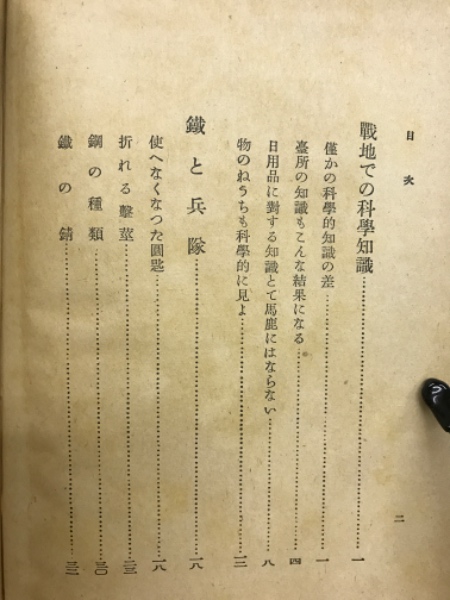 目次
戰地での科學知識……一
僅かの科學的知識の差……一
臺所の知識もこんな結果になる……四
日用品に對する知識とて馬鹿にはならない……八
物のねうちも科學的に見よ……一三
鐵と兵隊……一八
使へなくなつた圓匙……一八
折れる擊莖……二三
鋼の種類……三〇
鐵の錆……三三
二